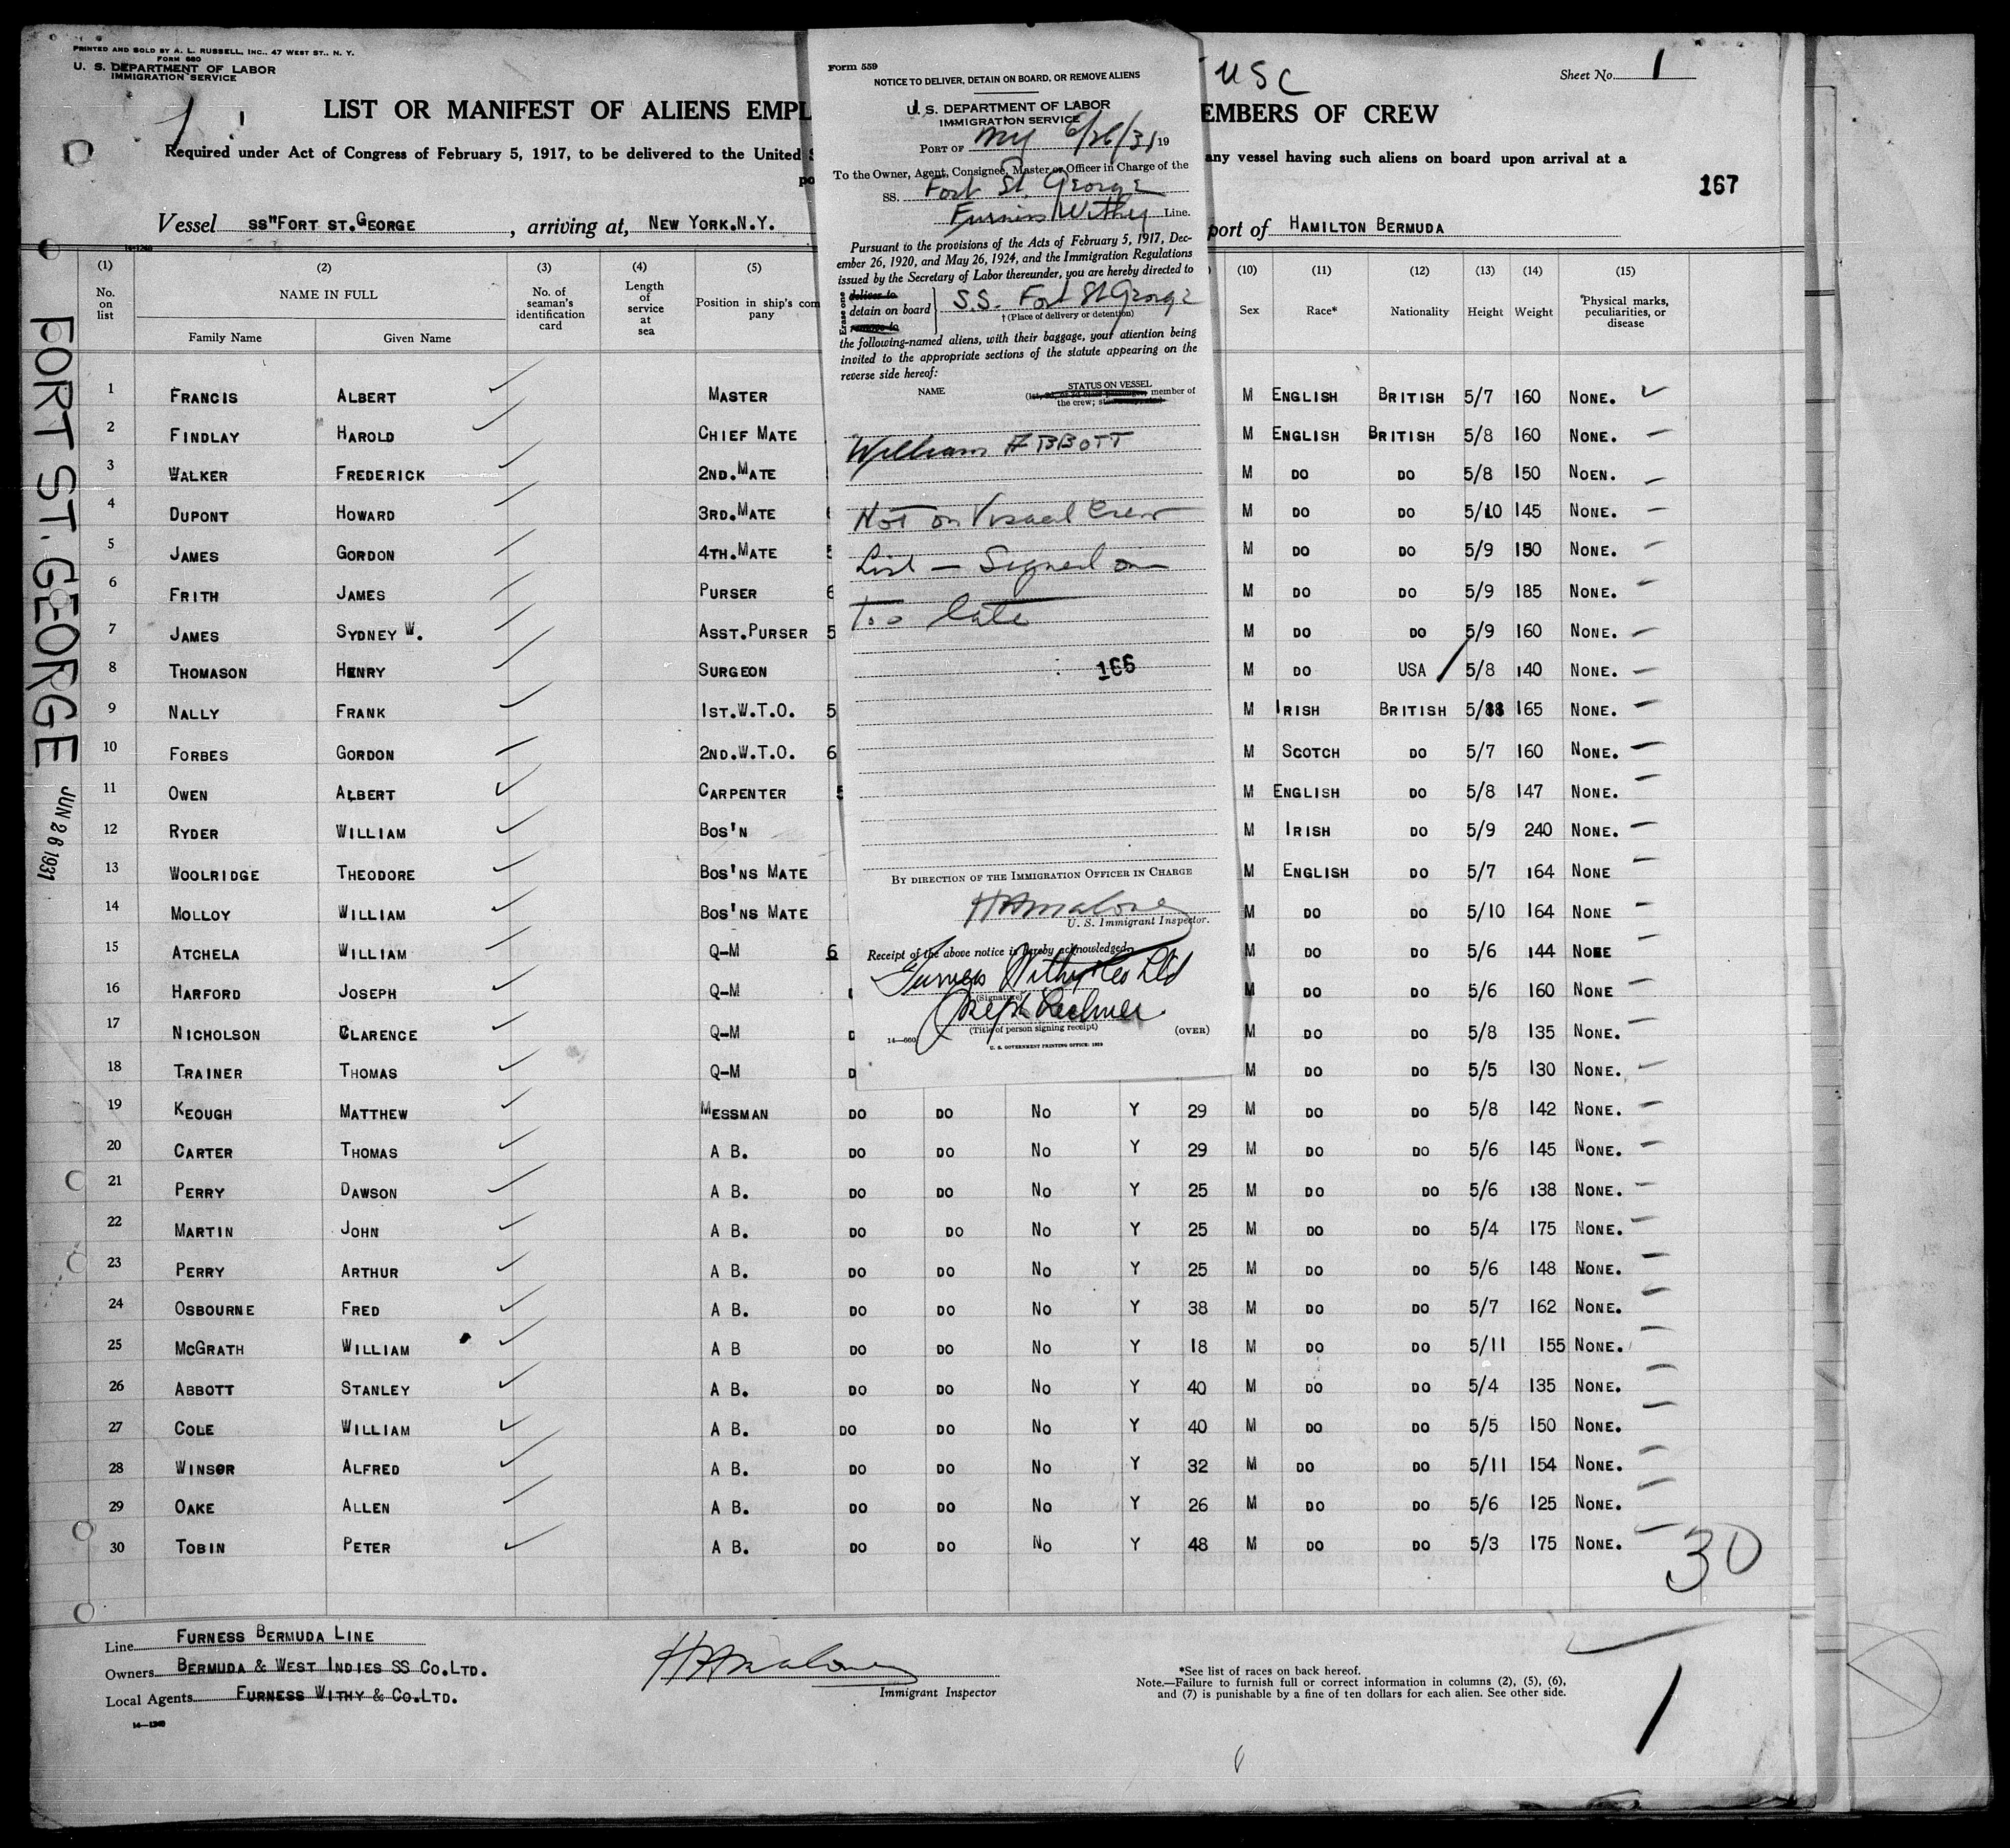 PRINTED AND SOLD BY A. L. RUSSELL, INC., 47 WEST ST., N. Y.
FORM 680
U. S. DEPARTMENT OF LABOR
IMMIGRATION SERVICE
USC
Sheet No. 1
LIST OR MANIFEST OF ALIENS EMPL
EMBERS OF CREW
Required under Act of Congress of February 5, 1917, to be delivered to the United S
any vessel having such aliens on board upon arrival at a
po
167
Vessel SS"FORT ST.GEORGE , arriving at, NEW YORK.N.Y.
port of HAMILTON BERMUDA
14-1240
(1) (2) (3) (4) (5) (10) (11) (12) (13) (14) (15)
No. on list
NAME IN FULL
Family Name
Given Name
No. of seaman's identification card
Length of service at sea
Position in ship's com pany
Sex
Race*
Nationality
Height
Weight
Physical marks, peculiarities, or disease
1 FRANCIS ALBERT MASTER M ENGLISH BRITISH 5/7 160 NONE.
2 FINDLAY HAROLD CHIEF MATE M ENGLISH BRITISH 5/8 160 NONE.
3 WALKER FREDERICK 2ND.MATE M DO DO 5/8 150 NOEN.
4 DUPONT HOWARD 3RD.MATE M DO DO 5/10 145 NONE.
5 JAMES GORDON 4TH.MATE M DO DO 5/9 150 NONE.
6 FRITH JAMES PURSER 6 M DO DO 5/9 185 NONE.
7 JAMES SYDNEY W. ASST.PURSER 5 M DO DO 5/9 160 NONE.
8 THOMASON HENRY SURGEON M DO USA 5/8 140 NONE.
9 NALLY FRANK 1ST.W.T.O. 5 M IRISH BRITISH 5/88 165 NONE.
10 FORBES GORDON 2ND.W.T.O. 6 M SCOTCH DO 5/7 160 NONE.
11 OWEN ALBERT CARPENTER M ENGLISH DO 5/8 147 NONE.
12 RYDER WILLIAM BOS'N M IRISH DO 5/9 240 NONE.
13 WOOLRIDGE THEODORE BOS'NS MATE M ENGLISH DO 5/7 164 NONE
14 MOLLOY WILLIAM BOS'NS MATE M DO DO 5/10 164 NONE
15 ATCHELA WILLIAM Q-M 6 M DO DO 5/6 144 NONE
16 HARFORD JOSEPH Q-M M DO DO 5/6 160 NONE
17 NICHOLSON CLARENCE Q-M D M DO DO 5/8 135 NONE.
18 TRAINER THOMAS Q-M D M DO DO 5/5 130 NONE.
19 KEOUGH MATTHEW MESSMAN DO DO NO Y 29 M DO DO 5/8 142 NONE.
20 CARTER THOMAS A B. DO DO NO Y 29 M DO DO 5/6 145 NONE.
21 PERRY DAWSON A B. DO DO NO Y 25 M DO DO 5/6 138 NONE.
22 MARTIN JOHN A B. DO DO NO Y 25 M DO DO 5/4 175 NONE.
23 PERRY ARTHUR A B. DO DO NO Y 25 M DO DO 5/6 148 NONE.
24 OSBOURNE FRED A B. DO DO NO Y 38 M DO DO 5/7 162 NONE.
25 MCGRATH WILLIAM A B DO DO NO Y 18 M DO DO 5/11 155 NONE.
26 ABBOTT STANLEY A B. DO DO NO Y 40 M DO DO 5/4 135 NONE.
27 COLE WILLIAM A B. DO DO NO Y 40 M DO DO 5/5 150 NONE.
28 WINSOR ALFRED A B. DO DO NO Y 32 M DO DO 5/11 154 NONE.
29 OAKE ALLEN A B. DO DO NO Y 26 M DO DO 5/6 125 NONE.
30 TOBIN PETER A B. DO DO NO Y 48 M DO DO 5/3 175 NONE.
30
Line FURNESS BERMUDA LINE
Owners BERMUDA & WEST INDIES SS CO.LTD.
Local Agents FURNESS WITHY & CO.LTD.
14-1240
HAMalone
Immigrant Inspector
*See list of races on back hereof.
Note.—Failure to furnish full or correct information in columns (2), (5), (6),
and (7) is punishable by a fine of ten dollars for each alien. See other side.
1
FORT ST. GEORGE
JUN 26 1931
Form 559
NOTICE TO DELIVER, DETAIN ON BOARD, OR REMOVE ALIENS
U. S. DEPARTMENT OF LABOR
IMMIGRATION SERVICE
PORT OF NY 6/26/31 19
To the Owner, Agent, Consignee, Master or Officer in Charge of the
SS. Fort St. George
Furness Withy Line.
Pursuant to the provisions of the Acts of February 5, 1917, Dec-
ember 26, 1920, and May 26, 1924, and the Immigration Regulations
issued by the Secretary of Labor thereunder, you are hereby directed to
Erase one
deliver to
detain on board
remove to
S.S. Fort St George
†(Place of delivery or detention)
the following-named aliens, with their baggage, your attention being
invited to the appropriate sections of the statute appearing on the
reverse side hereof:
NAME
STATUS ON VESSEL
member of
the crew;
William ABBOTT
Not on Visaed Crew
List — Signed on
too late
166
BY DIRECTION OF THE IMMIGRATION OFFICER IN CHARGE
HAMalone
U. S. Immigrant Inspector.
Receipt of the above notice is hereby acknowledged.
Furness Withy & Co Ltd
(Signature)
Joseph
(Title of person signing receipt)
(OVER)
14—660
U. S. GOVERNMENT PRINTING OFFICE: 1929